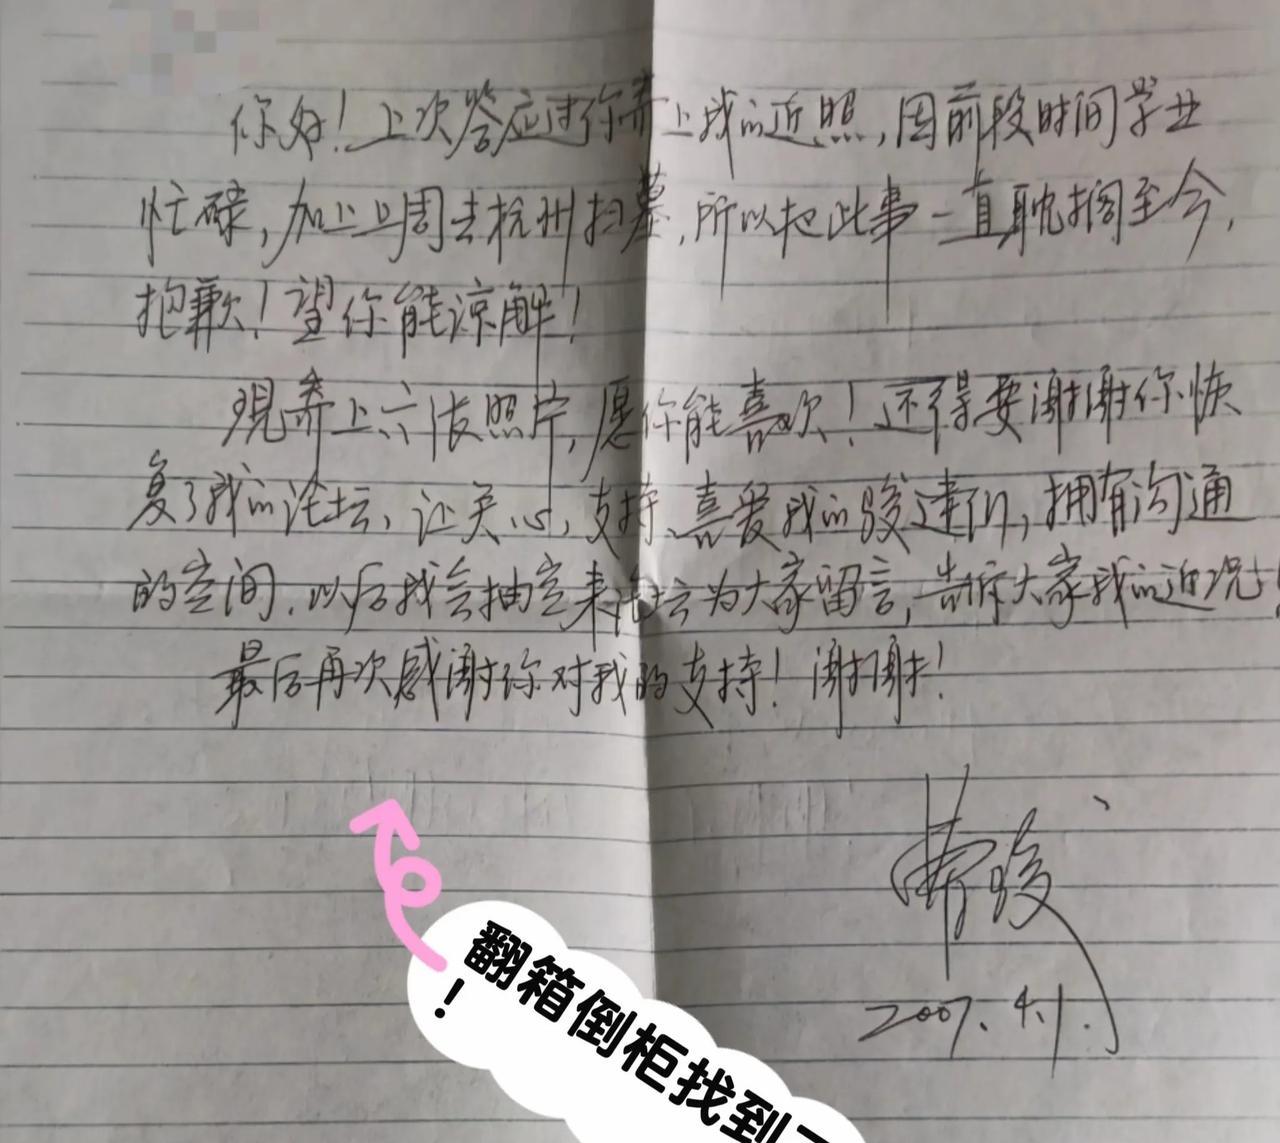 你好！上次答应过你寄上我的近照，因前段时间学业
忙碌，加上上周去杭州扫墓，所以把此事一直耽搁至今，
抱歉！望你能谅解！
现寄上六张照片，愿你能喜欢！还得要谢谢你恢
复了我的论坛，让关心、支持、喜爱我的骏迷们，拥有沟通
的空间，以后我会抽空来论坛为大家留言，告诉大家我的近况！
最后再次感谢你对我的支持！谢谢！
骏
2007.4.1.
翻箱倒柜找到了
！